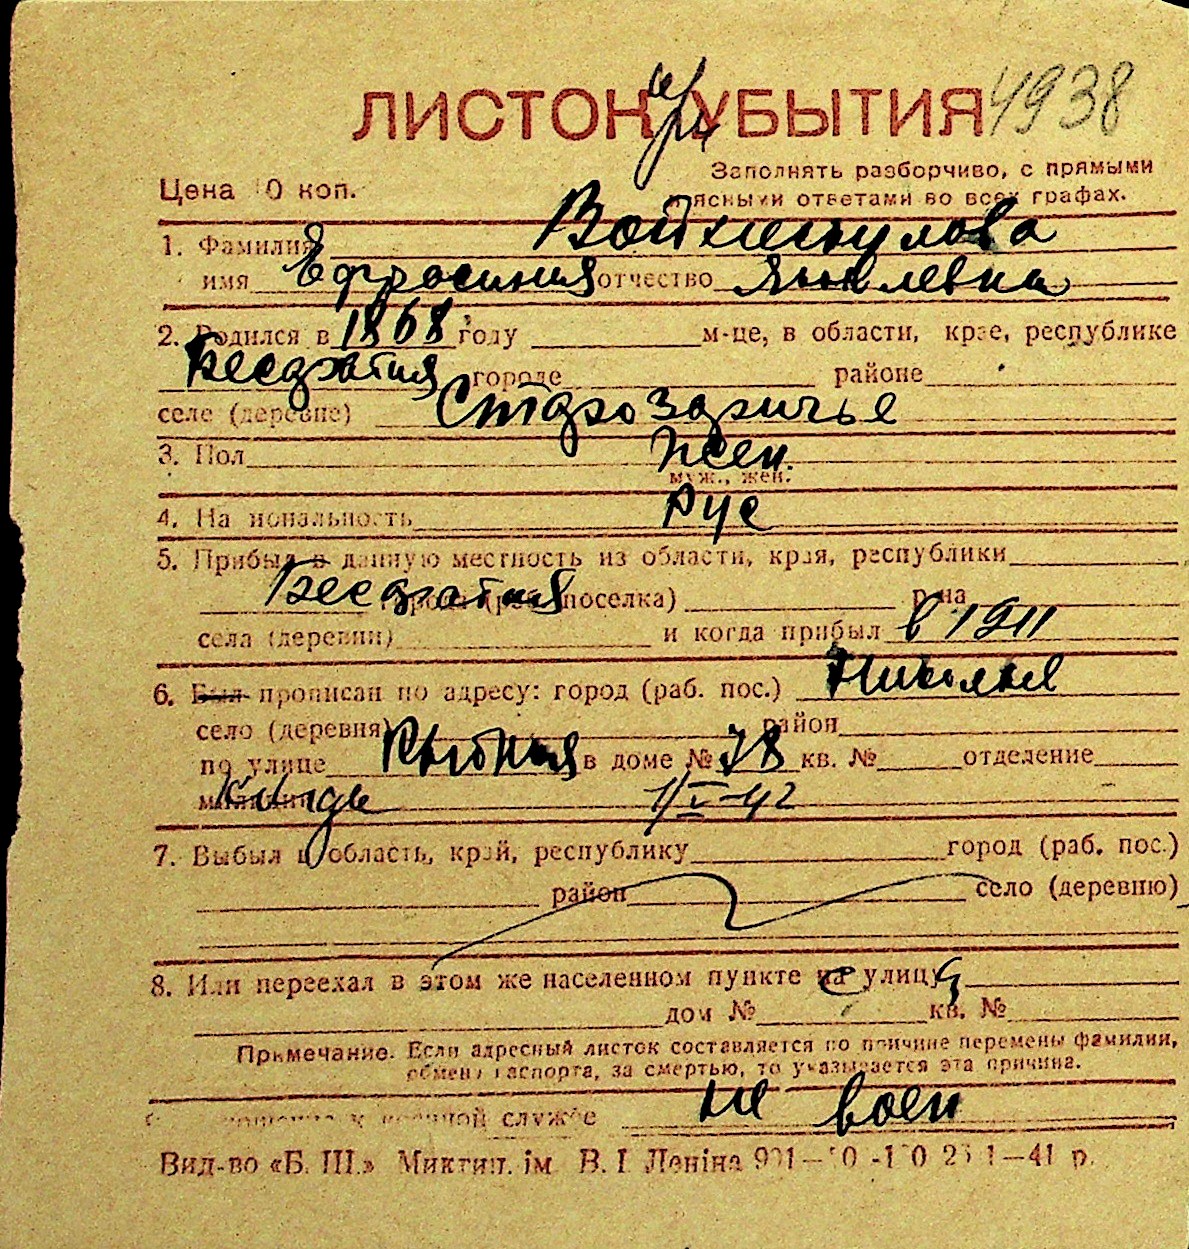 ЛИСТОК УБЫТИЯ 4938
Заполнять разборчиво, с прямыми
Цена 0 коп. ясными ответами во всех графах.
1. Фамилия
имя Ефросиния отчество Яковлевна
2. Родился в 1868 году м-це, в области, крае, республике
городе районе
селе (деревне)
3. Пол жен.
муж., жен.
4. Национальность Рус
5. Прибыл в данную местность из области, края, республики
города (раб. поселка) р-на
села (деревни) и когда прибыл в 1911
6. Был прописан по адресу: город (раб. пос.)
село (деревня) район
по улице в доме № 78 кв. № отделение
милиции 1/V-42
7. Выбыл в область, край, республику город (раб. пос.)
район село (деревню)
8. Или переехал в этом же населенном пункте на улицу
дом № кв. №
Примечание. Если адресный листок составляется по причине перемены фамилии,
обмена паспорта, за смертью, то указывается эта причина.
военной службе не воен
Вид-во «Б. Ш.» ім. В. І. Леніна 1—41 р.